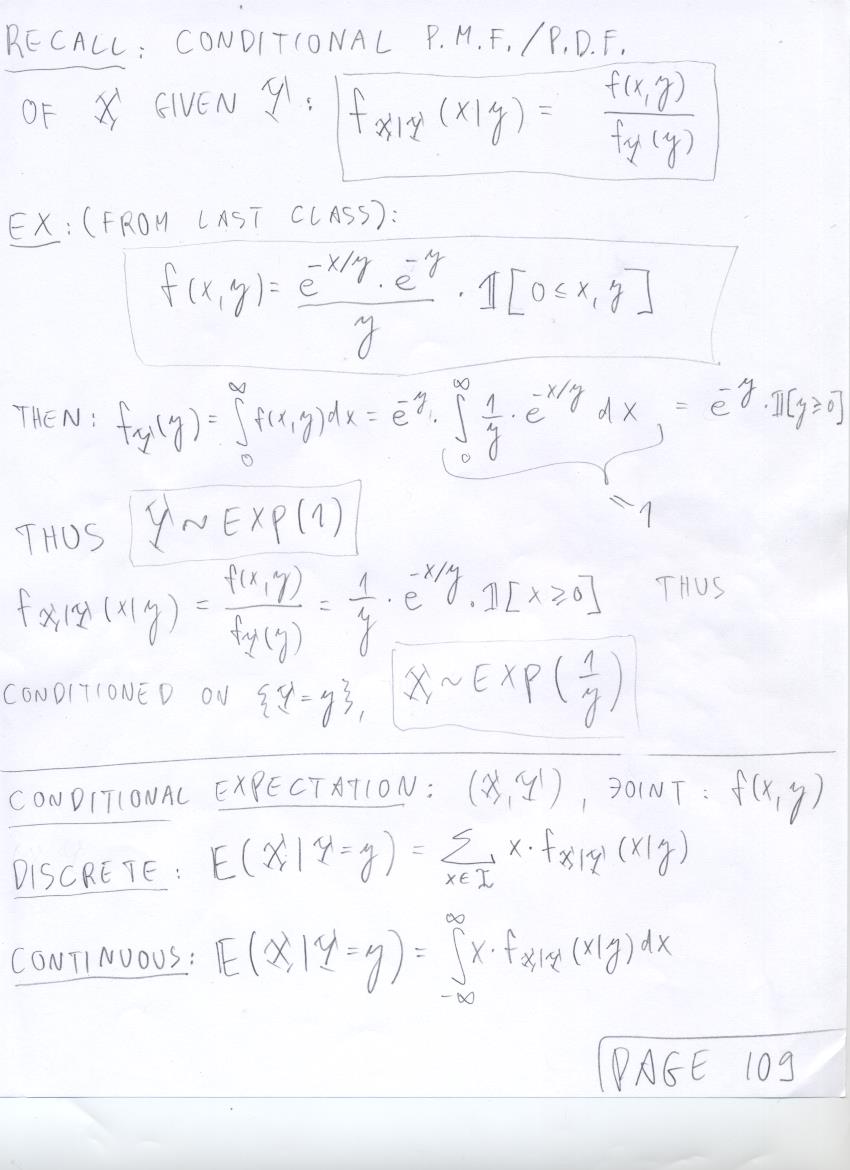 RECALL: CONDITIONAL P.M.F./P.D.F.
OF X GIVEN Y: f_{X|Y}(x|y) = f(x,y) / f_Y(y)
EX: (FROM LAST CLASS):
f(x,y) = (e^{-x/y} · e^{-y}) / y · 𝟙[0 ≤ x, y]
THEN: f_Y(y) = ∫_0^∞ f(x,y)dx = e^{-y} · ∫_0^∞ 1/y · e^{-x/y} dx = e^{-y} · 𝟙[y ≥ 0]
= 1
THUS Y ~ EXP(1)
f_{X|Y}(x|y) = f(x,y) / f_Y(y) = 1/y · e^{-x/y} · 𝟙[x ≥ 0] THUS
CONDITIONED ON {Y = y}, X ~ EXP(1/y)
CONDITIONAL EXPECTATION: (X, Y), JOINT: f(x,y)
DISCRETE: E(X | Y = y) = Σ_{x ∈ I} x · f_{X|Y}(x|y)
CONTINUOUS: E(X | Y = y) = ∫_{-∞}^∞ x · f_{X|Y}(x|y) dx
PAGE 109